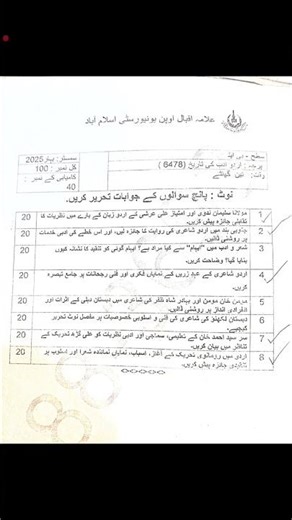 علامہ اقبال اوپن یونیورسٹی اسلام آباد
سطح: بی ایڈ
سمسٹر: بہار 2025
پرچہ: اردو ادب کی تاریخ (6478)
کل نمبر: 100
وقت: تین گھنٹے
کامیابی کے نمبر: 40
نوٹ: پانچ سوالوں کے جوابات تحریر کریں۔
1 مولانا سلیمان ندوی اور امتیاز علی عرشی کے اردو زبان کے بارے میں نظریات کا تقابلی جائزہ پیش کریں۔ 20
2 جنوبی ہند میں اردو شاعری کی روایت کا جائزہ لیں۔ اور اس خطے کی ادبی خدمات پر روشنی ڈالیں۔ 20
3 شعر و ادب میں "ایہام" سے کیا مراد ہے؟ ایہام گوئی کو تنقید کا نشانہ کیوں بنایا گیا؟ وضاحت کریں۔ 20
4 اردو شاعری کے عہد زریں کے نمایاں فکری اور فنی رجحانات پر جامع تبصرہ کریں۔ 20
5 مومن خان مومن اور بہادر شاہ ظفر کی شاعری میں دبستان دہلی کے اثرات اور انفرادی انداز پر روشنی ڈالیں۔ 20
6 دبستان لکھنؤ کی شاعری کی فنی و اسلوبی خصوصیات پر مفصل نوٹ تحریر کیجیے۔ 20
7 سر سید احمد خان کے تعلیمی، سماجی اور ادبی نظریات کو علی گڑھ تحریک کے تناظر میں بیان کریں۔ 20
8 اردو میں رومانوی تحریک کے آغاز، اسباب، نمایاں نمائندہ شعرا اور اسلوب پر تنقیدی جائزہ پیش کریں۔ 20